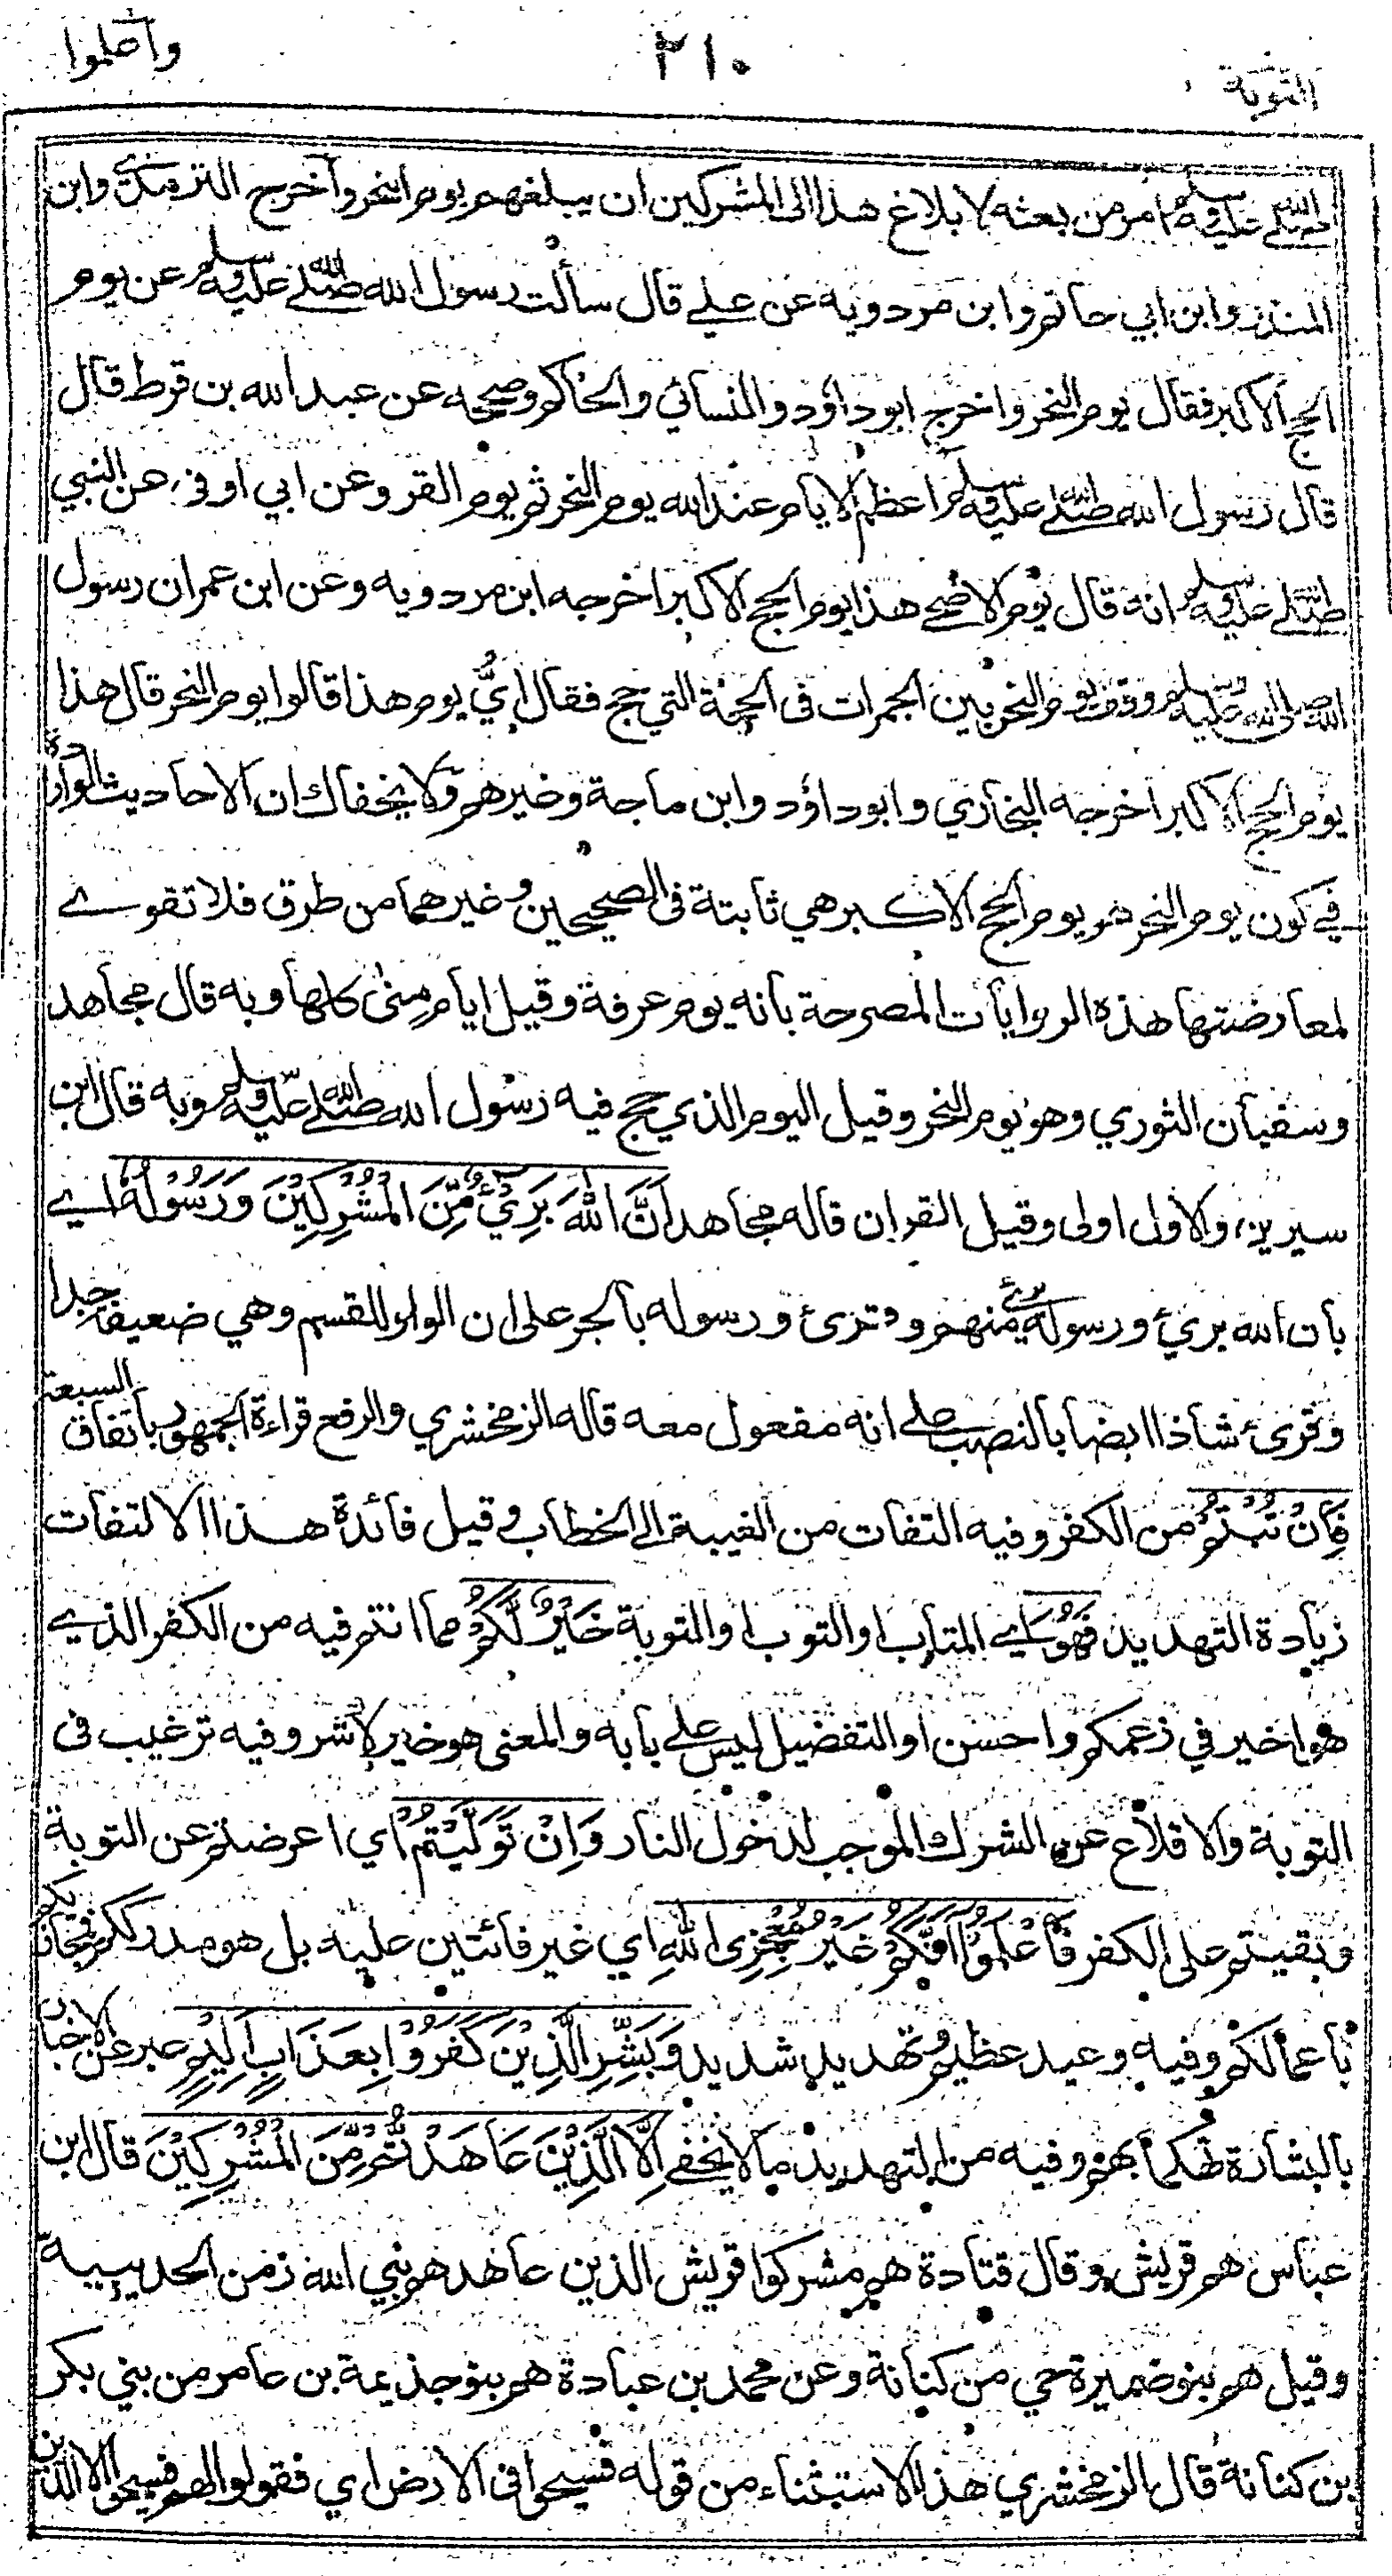 واعلموا
٢١٠
التوبة
صلى الله عليه وسلم امر من بعثه لابلاغ هذا الى المشركين ان يبلغهم يوم النحر وأخرج الترمذي وابن
المنذر وابن ابي حاتم وابن مردويه عن علي قال سألت رسول الله صلى الله عليه وسلم عن يوم
الحج الاكبر فقال يوم النحر واخرج ابو داؤد والنسائي والحاكم وصححه عن عبد الله بن قرط قال
قال رسول الله صلى الله عليه وسلم اعظم الايام عند الله يوم النحر ثم يوم القر وعن ابي اوفى عن النبي
صلى الله عليه وسلم انه قال يوم الاضحى هذا يوم الحج الاكبر اخرجه ابن مردويه وعن ابن عمر ان رسول
الله صلى الله عليه وسلم وقف يوم النحر بين الجمرات فى الحجة التي حج فقال ايُّ يوم هذا قالوا يوم النحر قال هذا
يوم الحج الاكبر اخرجه البخاري وابو داؤد وابن ماجة وغيرهم ولا يخفاك ان الاحاديث الواردة
في كون يوم النحر هو يوم الحج الاكبر هي ثابتة فى الصحيحين وغيرهما من طرق فلا تقوى
لمعارضتها هذه الروايات المصرحة بانه يوم عرفة وقيل ايام منى كلها وبه قال مجاهد
وسفيان الثوري وهو يوم النحر وقيل اليوم الذي حج فيه رسول الله صلى الله عليه وسلم وبه قال ابن
سيرين والاول اولى وقيل القران قاله مجاهد اَنَّ اللّٰهَ بَرِيْءٌ مِّنَ الْمُشْرِكِيْنَ وَرَسُوْلُهٗ اي
بان الله بريء ورسوله بريء منهم وقرئ ورسوله بالجر على ان الواو للقسم وهي ضعيفة جدا
وقرئ شاذا ايضا بالنصب على انه مفعول معه قاله الزمخشري والرفع قراءة الجمهور باتفاق السبعة
فَاِنْ تُبْتُمْ من الكفر وفيه التفات من الغيبة الى الخطاب وقيل فائدة هذا الالتفات
زيادة التهديد فَهُوَ اي المتاب او التوب او التوبة خَيْرٌ لَّكُمْ مما انتم فيه من الكفر الذي
هو خير في زعمكم واحسن او التفضيل ليس على بابه والمعنى هو خير لا شر وفيه ترغيب فى
التوبة والاقلاع عن الشرك الموجب لدخول النار وَاِنْ تَوَلَّيْتُمْ اي اعرضتم عن التوبة
وبقيتم على الكفر فَاعْلَمُوْا اَنَّكُمْ غَيْرُ مُعْجِزِى اللّٰهِ اي غير فائتين عليه بل هو مدرككم فمجازيكم
باعمالكم وفيه وعيد عظيم وتهديد شديد وَبَشِّرِ الَّذِيْنَ كَفَرُوْا بِعَذَابٍ اَلِيْمٍ عبر عن الاخبار
بالبشارة تهكما بهم وفيه من التهديد ما لا يخفى اِلَّا الَّذِيْنَ عَاهَدْتُّمْ مِّنَ الْمُشْرِكِيْنَ قال ابن
عباس هم قريش وقال قتادة هم مشركوا قريش الذين عاهدهم نبي الله زمن الحديبية
وقيل هم بنو ضميرة حي من كنانة وعن محمد بن عبادة هم بنو جذيمة بن عامر من بني بكر
بن كنانة قال الزمخشري هذا الاستثناء من قوله فسيحوا فى الارض اي فقولوا لهم فسيحوا الا الذين